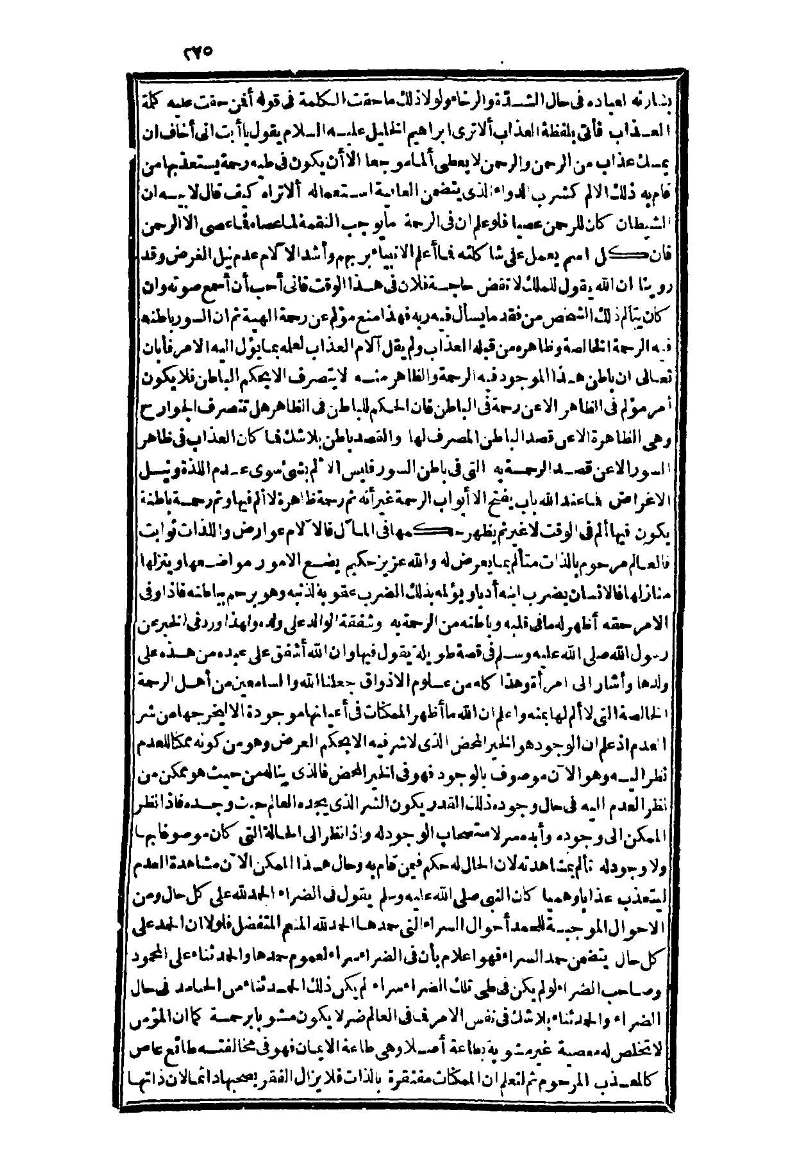 ٢٧٥
بشارته لعباده فى حال الشدّة والرخاء ولولا ذلك ما حقت الكلمة فى قوله أفمن حقت عليه كلة
العذاب فأتى بلفظة العذاب ألا ترى ابراهيم الخليل عليه السلام يقول يا أبت انى أخاف ان
يمسك عذاب من الرحمن والرحمن لا يعطى ألما موجعا الا أن يكون فى طيه رحمة يستعذبها من
قام به ذلك الالم كشرب الدواء الذى يتضمن العافية استعماله ألا تراه كيف قال لابيه ان
الشيطان كان للرحمن عصيا فلو علم ان فى الرحمة ما يوجب النقمة لما عصاه فما عصى الا الرحمن
فان كل اسم يعمل على شاكلته فما أعلم الانبياء بربهم وأشد الآلام عدم نيل الغرض وقد
روينا ان الله يقول للملك لا تقض حاجة فلان فى هذا الوقت فانى أحب أن أسمع صوته وان
كان يتألم ذلك الشخص من فقد ما يسأل فيه ربه فهذا منع مؤلم عن رحمة الهية ثم ان السور باطنه
فيه الرحمة الخالصة وظاهره من قبله العذاب ولم يقل آلام العذاب لعلمه بما يؤل اليه الامر فأبان
تعالى ان باطن هذا الموجود فيه الرحمة والظاهر منه لا يتصرف الا بحكم الباطن فلا يكون
أمر مؤلم فى الظاهر الا عن رحمة فى الباطن فان الحكم للباطن فى الظاهر هل تتصرف الجوارح
وهى الظاهرة الا عن قصد الباطن المصرف لها والقصد باطن بلا شك فما كان العذاب فى ظاهر
السور الا عن قصد الرحمة به التى فى باطن السور فليس الالم بشئ سوى عدم اللذة ونيل
الاغراض فما عند الله باب يفتح الا أبواب الرحمة غير أنه ثم رحمة ظاهرة لا ألم فيها وثم رحمة باطنة
يكون فيها ألم فى الوقت لا غير ثم يظهر حكمها فى المآل فالآلام عوارض واللذات ثوابت
فالعالم مرحوم بالذات متألم بما يعرض له والله عزيز حكيم يضع الامور مواضعها وينزلها
منازلها فالانسان يضرب ابنه أدبا ويؤلمه بذلك الضرب عقوبة لذنبه وهو يرحم بباطنه فاذا وفى
الامر حقه أظهر له ما فى قلبه وباطنه من الرحمة به وشفقة الوالد على ولده ولهذا ورد فى الخبر عن
رسول الله صلى الله عليه وسلم فى قصة طويلة يقول فيها وان الله أشفق على عبده من هذه على
ولدها وأشار الى امرأة وهذا كله من علوم الاذواق جعلنا الله والسامعين من أهل الرحمة
الخالصة التى لا ألم لها بمنه واعلم ان الله ما أظهر الممكنات فى أعيانها موجودة الا ليخرجها من شر
العدم اذ علم ان الوجود هو الخير المحض الذى لا شر فيه الا بحكم العرض وهو من كونه ممكنا للعدم
نظر اليه وهو الآن موصوف بالوجود فهو فى الخير المحض فالذى يناله من حيث هو ممكن من
نظر العدم اليه فى حال وجوده ذلك القدر يكون الشر الذى يجده العالم حيث وجده فاذا نظر
الممكن الى وجوده وأبده سر لاستصحاب الوجود له واذا نظر الى الحالة التى كان موصوفا بها
ولا وجود له تألم بمشاهدته لان الحال له حكم فيمن قام به وحال هذا الممكن الآن مشاهدة العدم
ليتعذب عذابا وهميا كان النبى صلى الله عليه وسلم يقول فى الضراء الحمد لله على كل حال ومن
الاحوال الموجبة للحمد أحوال السراء التى حمدها الحمد لله المنعم المتفضل فلولا ان الحمد على
كل حال يتضمن حمد السراء فهو اعلام بأن فى الضراء سراء لعموم حمدها والحمد ثناء على المحمود
وصاحب الضراء لو لم يكن فى طى تلك الضراء سراء لم يكن ذلك الحمد ثناء من الحامد فى حال
الضراء والحمد ثناء بلا شك فى نفس الامر فما فى العالم ضر لا يكون مشوبا برحمة كما ان المؤمن
لا تخلص له معصية غير مشوبة بطاعة أصلا وهى طاعة الايمان فهو فى مخالفته طائع عاص
كالمعذب المرحوم ثم لتعلم ان الممكنات مفتقرة بالذات فلا يزال الفقر يصحبها دائما لان ذاتها